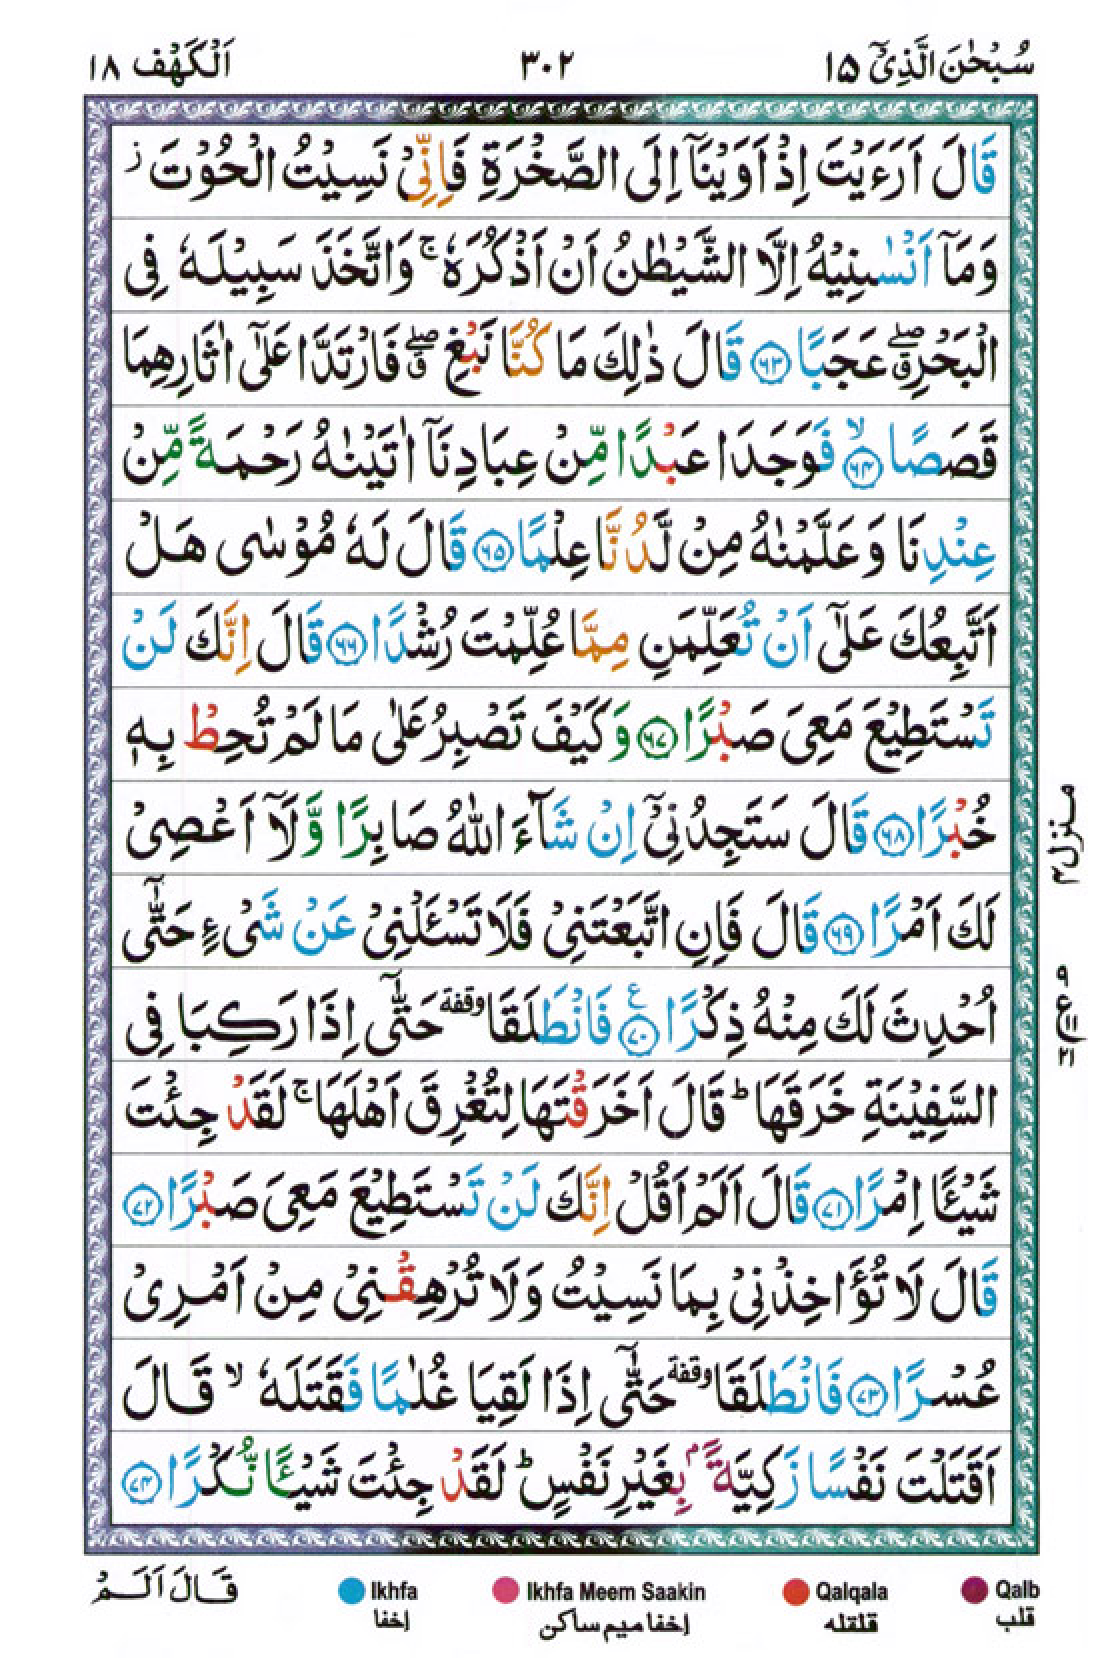 سُبْحٰنَ الَّذِیْۤ ١٥
٣٠٢
اَلْكَهْف ١٨
قَالَ اَرَءَیْتَ اِذْ اَوَیْنَاۤ اِلَى الصَّخْرَةِ فَاِنِّیْ نَسِیْتُ الْحُوْتَ ز
وَمَاۤ اَنْسٰىنِیْهُ اِلَّا الشَّیْطٰنُ اَنْ اَذْكُرَهٗ ۚ وَاتَّخَذَ سَبِیْلَهٗ فِی
الْبَحْرِ ۖۗ عَجَبًا ﴿۶۳﴾ قَالَ ذٰلِكَ مَا كُنَّا نَبْغِ ۖۗ فَارْتَدَّا عَلٰۤى اٰثَارِهِمَا
قَصَصًا ﴿۶۴﴾ۙ فَوَجَدَا عَبْدًا مِّنْ عِبَادِنَاۤ اٰتَیْنٰهُ رَحْمَةً مِّنْ
عِنْدِنَا وَعَلَّمْنٰهُ مِنْ لَّدُنَّا عِلْمًا ﴿۶۵﴾ قَالَ لَهٗ مُوْسٰى هَلْ
اَتَّبِعُكَ عَلٰۤى اَنْ تُعَلِّمَنِ مِمَّا عُلِّمْتَ رُشْدًا ﴿۶۶﴾ قَالَ اِنَّكَ لَنْ
تَسْتَطِیْعَ مَعِیَ صَبْرًا ﴿۶۷﴾ وَكَیْفَ تَصْبِرُ عَلٰى مَا لَمْ تُحِطْ بِهٖ
خُبْرًا ﴿۶۸﴾ قَالَ سَتَجِدُنِیْۤ اِنْ شَآءَ اللّٰهُ صَابِرًا وَّلَاۤ اَعْصِیْ
لَكَ اَمْرًا ﴿۶۹﴾ قَالَ فَاِنِ اتَّبَعْتَنِیْ فَلَا تَسْـَٔلْنِیْ عَنْ شَیْءٍ حَتّٰۤى
اُحْدِثَ لَكَ مِنْهُ ذِكْرًا ﴿۷۰﴾ ع فَانْطَلَقَا وقفة حَتّٰۤى اِذَا رَكِبَا فِی
السَّفِیْنَةِ خَرَقَهَا ؕ قَالَ اَخَرَقْتَهَا لِتُغْرِقَ اَهْلَهَا ۚ لَقَدْ جِئْتَ
شَیْـًٔا اِمْرًا ﴿۷۱﴾ قَالَ اَلَمْ اَقُلْ اِنَّكَ لَنْ تَسْتَطِیْعَ مَعِیَ صَبْرًا ﴿۷۲﴾
قَالَ لَا تُؤَاخِذْنِیْ بِمَا نَسِیْتُ وَلَا تُرْهِقْنِیْ مِنْ اَمْرِیْ
عُسْرًا ﴿۷۳﴾ فَانْطَلَقَا وقفة حَتّٰۤى اِذَا لَقِیَا غُلٰمًا فَقَتَلَهٗ ۙ قَالَ
اَقَتَلْتَ نَفْسًا زَكِیَّةًۢ بِغَیْرِ نَفْسٍ ؕ لَقَدْ جِئْتَ شَیْـًٔا نُّكْرًا ﴿۷۴﴾
منزل ۴
۹
ع
۱۱
۲۱
قَالَ اَلَمْ
Ikhfa
إخفا
Ikhfa Meem Saakin
إخفا ميم ساكن
Qalqala
قلقله
Qalb
قلب